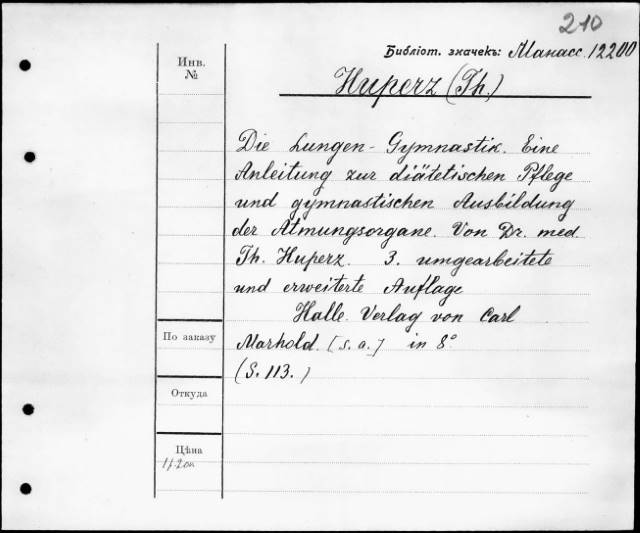 210
Библіот. значекъ: Манасс. 12200
Инв.
№
Huperz (Th.)
Die Lungen-Gymnastik. Eine
Anleitung zur diätetischen Pflege
und gymnastischen Ausbildung
der Atmungsorgane. Von Dr. med.
Th. Huperz. 3. umgearbeitete
und erweiterte Auflage
Halle. Verlag von Carl
Marhold. [s. a.] in 8°
(S. 113.)
По заказу
Откуда
Цѣна